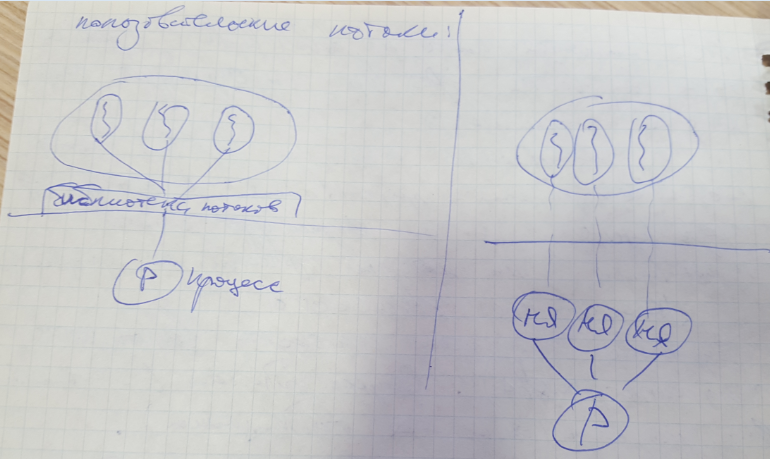 пользовательские потоки:
библиотека потоков
P процесс
НЯ НЯ НЯ
P